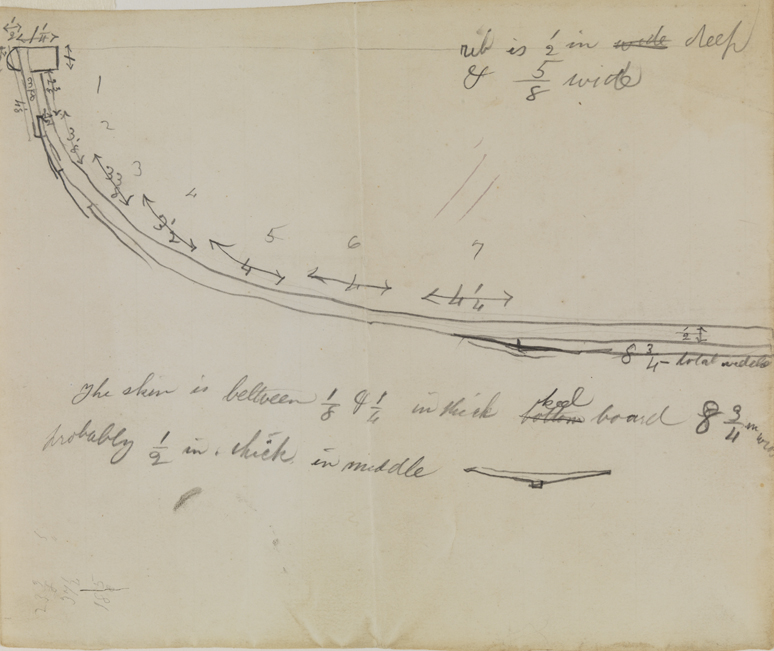 rib is 1/2 in wide deep
& 5/8 wide
1/2 1 1/4
1
2 3/8
1
2
3 1/8
3
3 3/8
4
3 1/2
5
4
6
4
7
4 1/4
1/2
8 3/4 total width
The skin is between 1/8 & 1/4 in thick bottom keel board 8 3/4 in wide
probably 1/2 in. thick in middle